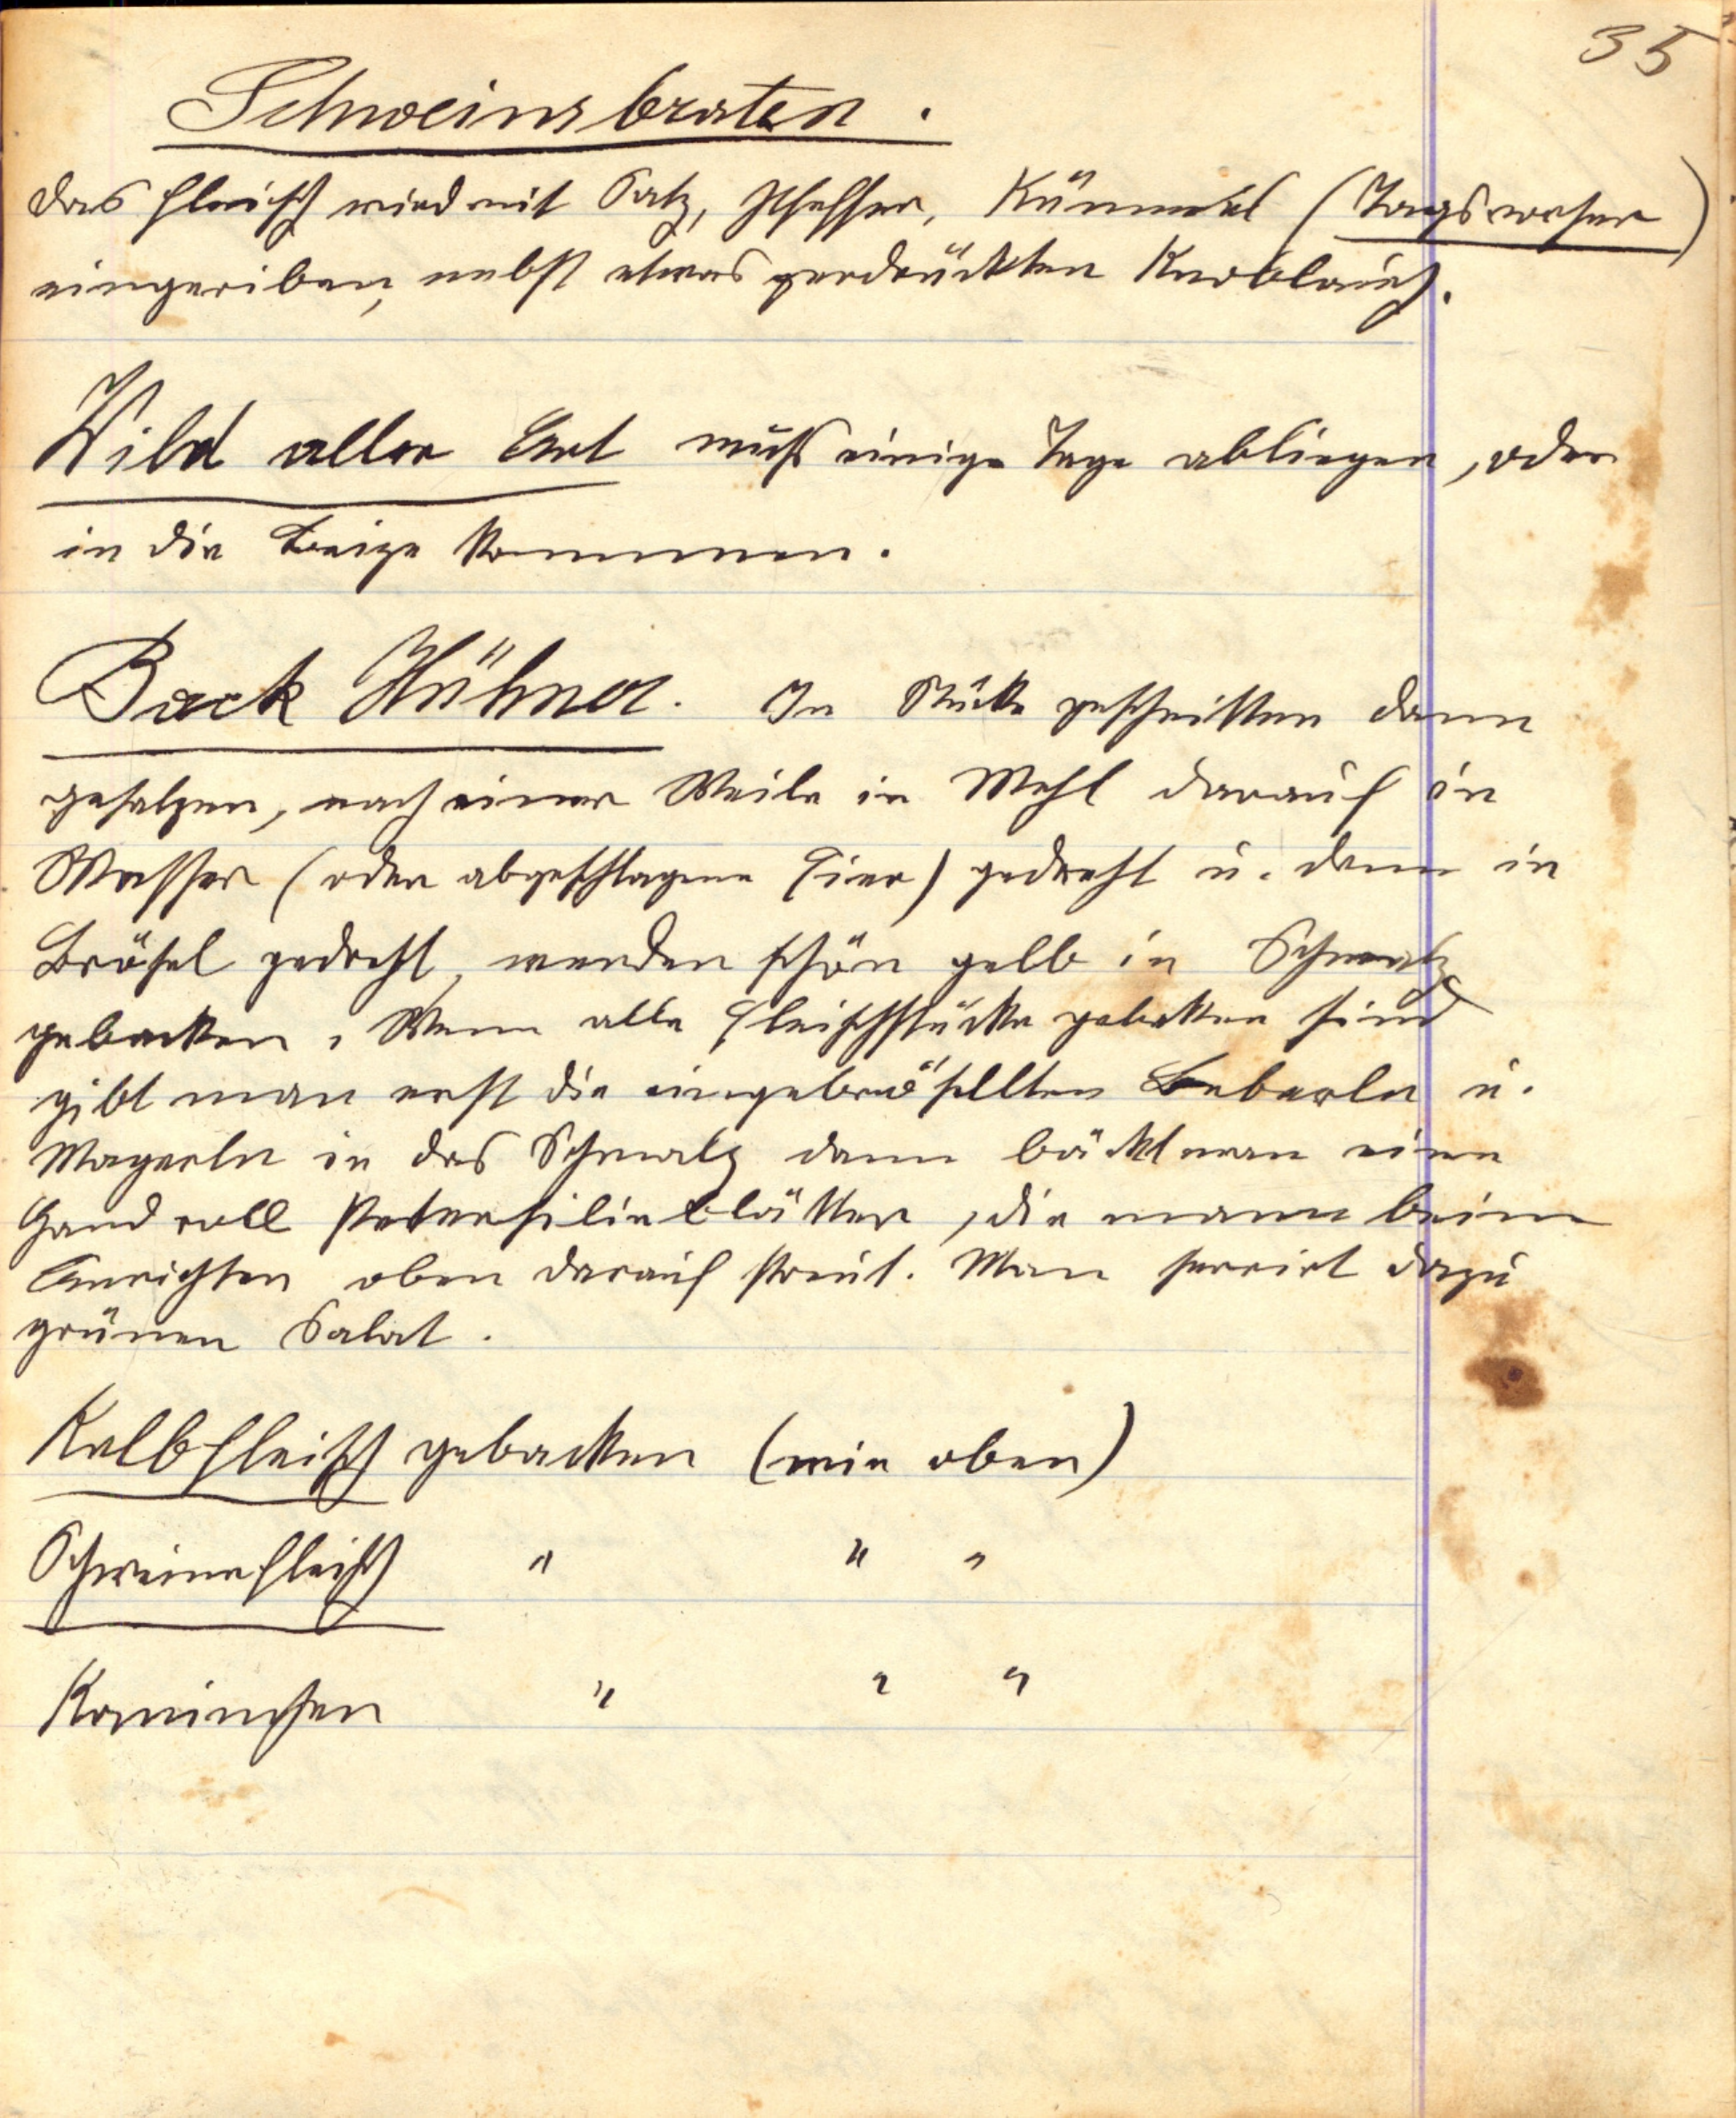 35
Schweinsbraten.
das Fleisch wird mit Salz, Pfeffer, Kümmel (Tags vorher)
eingeriben, nebst etwas zerdrückten Knoblauch.
Wild aller Art muß einige Tage abliegen, oder
in die Beize kommen.
Back Hühner. In Stücke geschnitten dann
gesalzen, nach einer Weile in Mehl darauf in
Wasser (oder abgeschlagene Eier) gedreht u. dann in
Brösel gedreht, werden schön gelb in Schmalz
gebacken. Wenn alle Fleischstücke gebakken sind
gibt man erst die eingebröselten Leberln u.
Magerln in das Schmalz dann bäckt man eine
Hand voll Petersilieblätter, die mann beim
Anrichten oben darauf streut. Man servirt dazu
grünen Salat.
Kalbfleisch gebacken (wie oben)
Schweinefleisch " " "
Kaninchen " " "